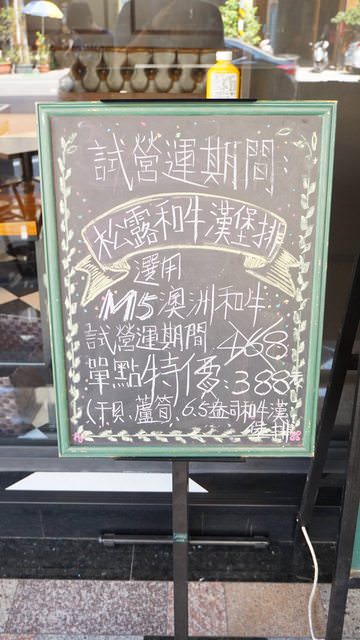 試營運期間:
松露和牛漢堡排
選用
M5澳洲和牛
試營運期間 468
單點特價:388元
(干貝.蘆筍.6.5盎司和牛漢
堡排